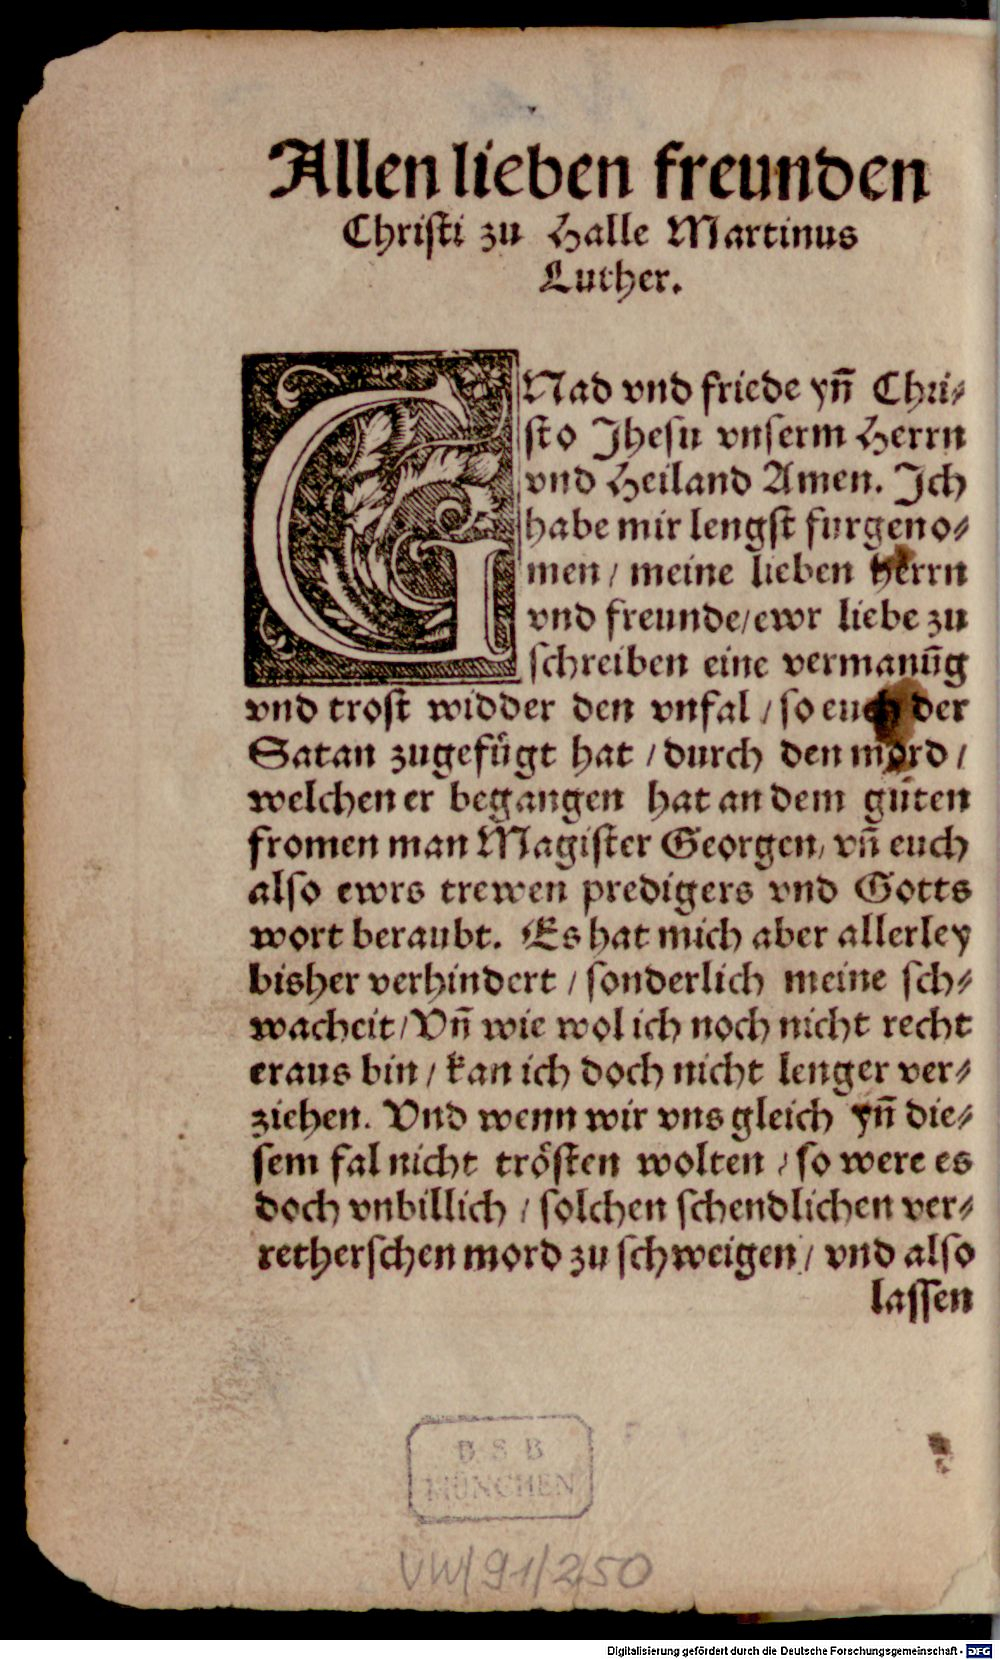 Allen lieben freunden
Christi zu Halle Martinus
Luther.
GNad vnd friede yñ Chri⸗
sto Jhesu vnserm Herrn
vnd Heiland Amen. Jch
habe mir lengst furgeno⸗
men / meine lieben herrn
vnd freunde / ewr liebe zu
schreiben eine vermanũg
vnd trost widder den vnfal / so euch der
Satan zugefügt hat / durch den mord /
welchen er begangen hat an dem gůten
fromen man Magister Georgen / vñ euch
also ewrs trewen predigers vnd Gotts
wort beraubt. Es hat mich aber allerley
bisher verhindert / sonderlich meine sch⸗
wacheit / Vñ wie wol ich noch nicht recht
eraus bin / kan ich doch nicht lenger ver⸗
ziehen. Vnd wenn wir vns gleich yñ die⸗
sem fal nicht trösten wolten / so were es
doch vnbillich / solchen schendlichen ver⸗
retherschen mord zu schweigen / vnd also
lassen
B S B
MÜNCHEN
VW/91/250
Digitalisierung gefördert durch die Deutsche Forschungsgemeinschaft - DFG